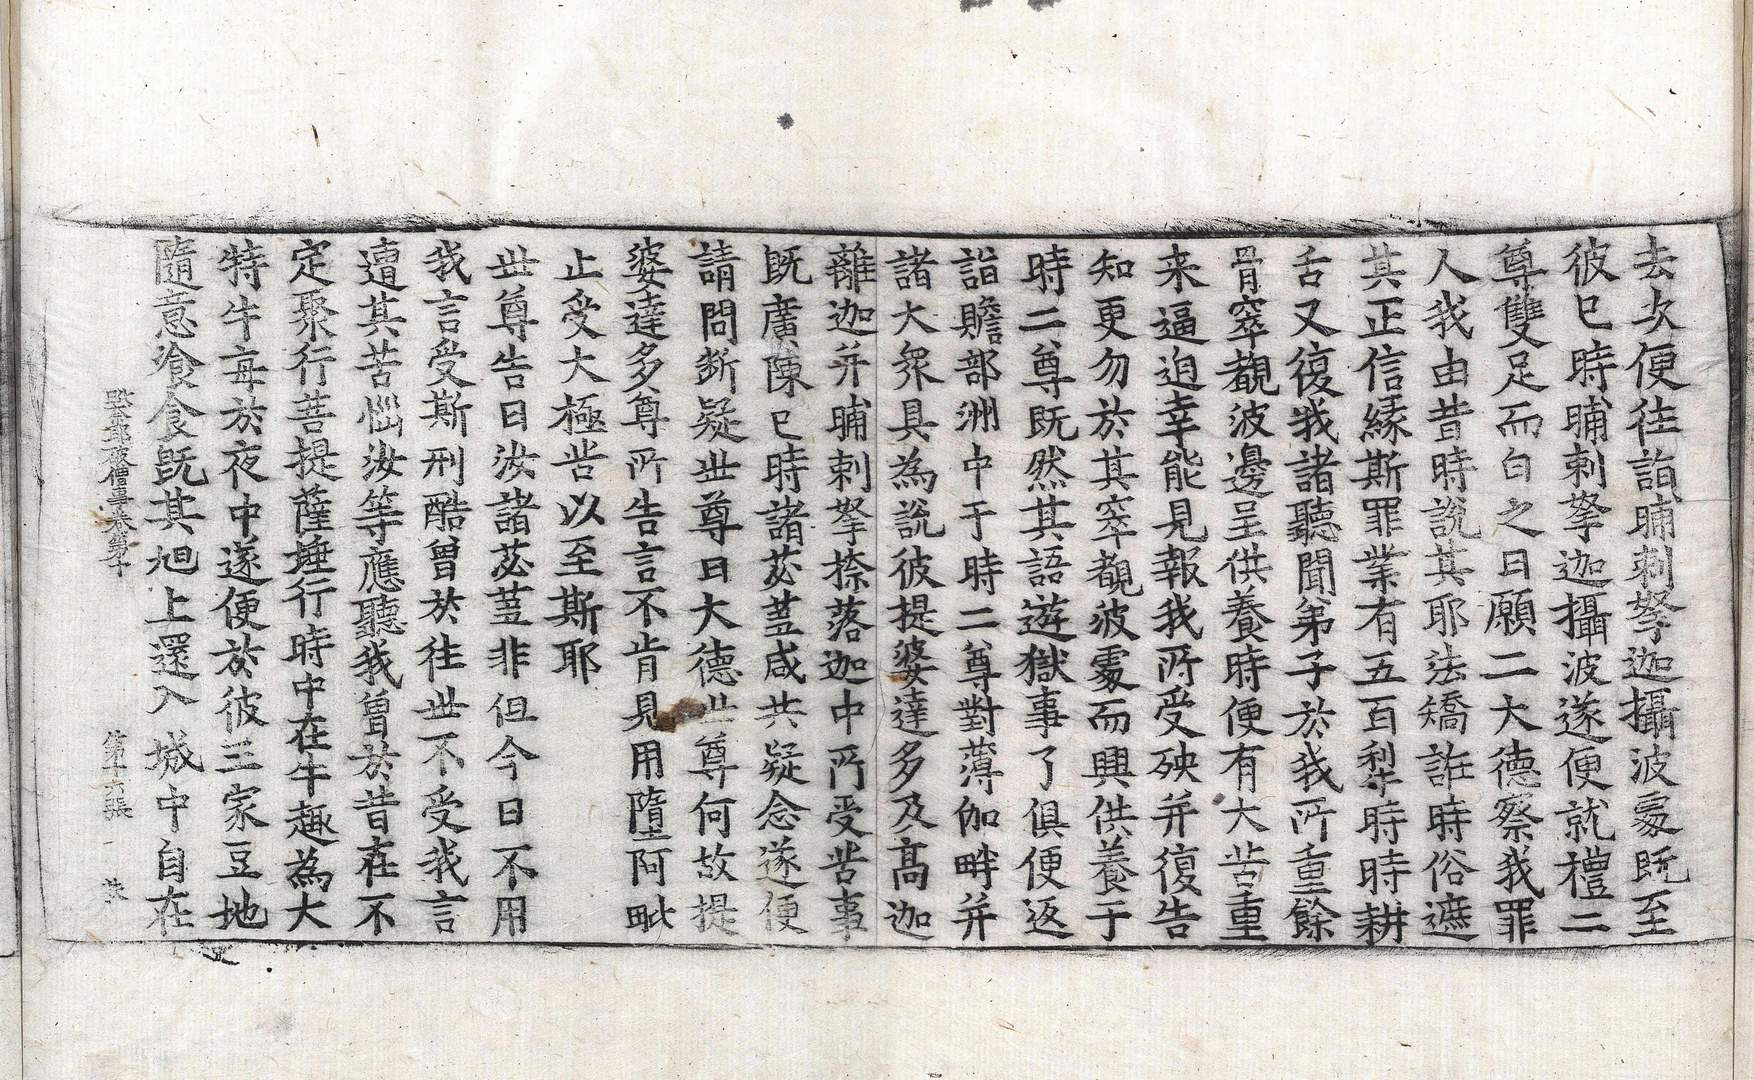 去次便往詣晡刺拏迦攝波處既至
彼已時晡刺拏迦攝波遂便就禮二
尊雙足而白之曰願二大德察我罪
人我由昔時說其耶法矯誑時俗遮
其正信緣斯罪業有五百犁時時耕
舌又復我諸聽聞弟子於我所重餘
骨窣覩波邊呈供養時便有大苦重
来逼迫幸能見報我所受殃并復告
知更勿於其窣覩波處而興供養于
時二尊既然其語遊獄事了俱便返
詣贍部洲中于時二尊對薄伽畔并
諸大衆具為說彼提婆達多及高迦
離迦并晡刺拏捺落迦中所受苦事
既廣陳已時諸苾蒭咸共疑念遂便
請問斷疑世尊曰大德世尊何故提
婆達多尊所告言不肯見用墮阿毗
止受大極苦以至斯耶
世尊告曰汝諸苾蒭非但今日不用
我言受斯刑酷曾於往世不受我言
遭其苦惱汝等應聽我曾於昔在不
定聚行菩提薩埵行時中在牛趣為大
特牛每於夜中遂便於彼王家豆地
隨意飡食既其旭上還入城中自在
破僧事卷第十 第十六張